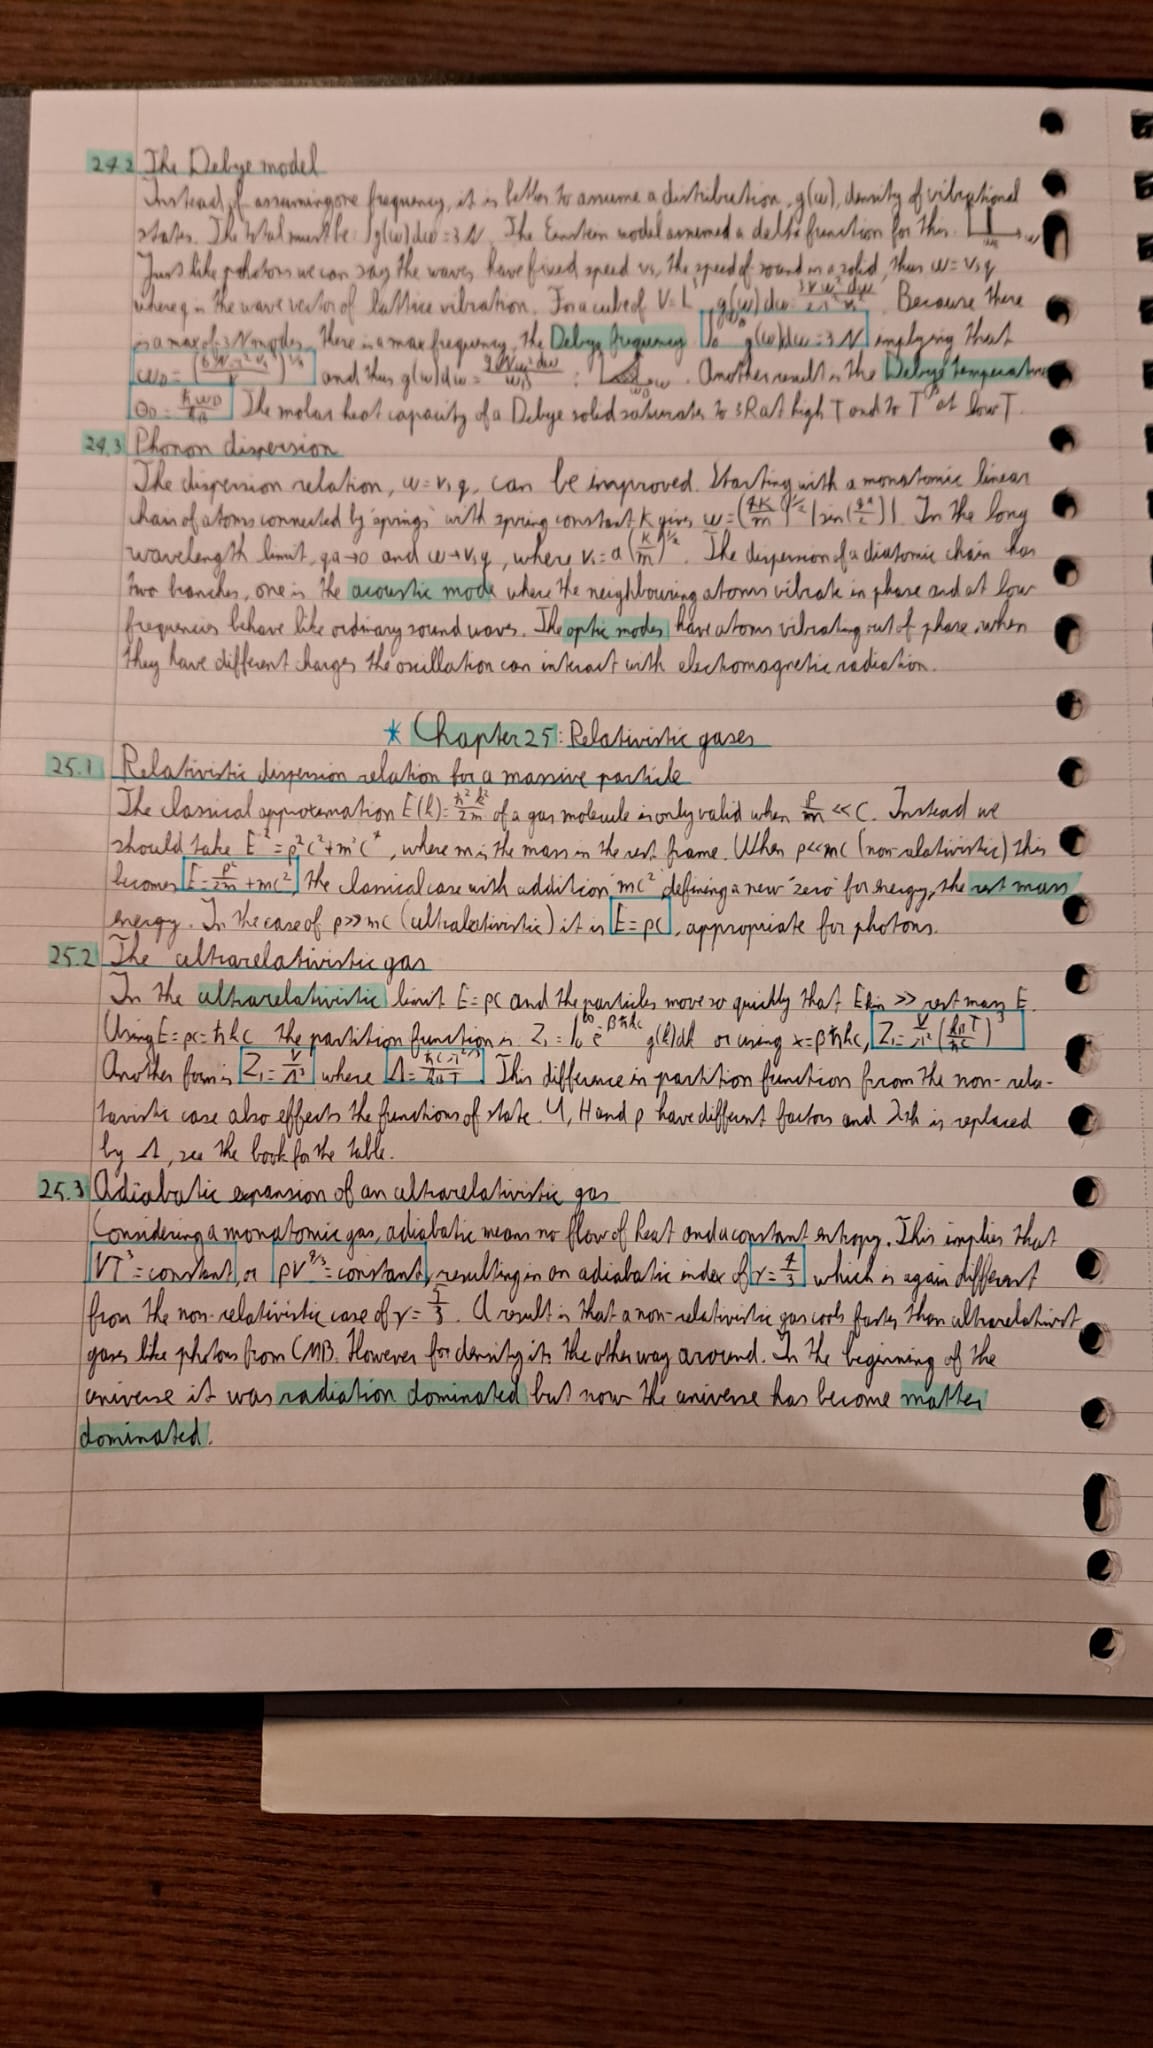 24.2 The Debye model
Instead of assuming one frequency, it is better to assume a distribution, g(ω), density of vibrational
states. The total must be ∫g(ω)dω = 3N. The Einstein model assumed a delta function for this.
Just like photons we can say the waves have fixed speed vs, the speed of sound in a solid, thus ω = vs q
where q is the wave vector of lattice vibration. For a cube of V = L³ g(ω)dω = 3Vω²dω/2π²vs³. Because there
is a max of 3N modes, there is a max frequency, the Debye frequency ∫₀^ωD g(ω)dω = 3N implying that
ωD = (6Nπ²vs³/V)^1/3 and thus g(ω)dω = 9Nω²dω/ωD³ : ωD ω. Another result is the Debye temperature
ΘD = ħωD/kB. The molar heat capacity of a Debye solid saturates to 3R at high T and to T³ at low T.
24.3 Phonon dispersion
The dispersion relation, ω = vs q, can be improved. Starting with a monatomic linear
chain of atoms connected by 'springs' with spring constant K gives ω = (4K/m)^1/2 |sin(qa/2)|. In the long
wavelength limit, qa→0 and ω→vs q, where vs = a(K/m)^1/2. The dispersion of a diatomic chain has
two branches, one is the acoustic mode where the neighbouring atoms vibrate in phase and at low
frequencies behave like ordinary sound waves. The optic modes have atoms vibrating out of phase, when
they have different charges the oscillation can interact with electromagnetic radiation.
* Chapter 25: Relativistic gases
25.1 Relativistic dispersion relation for a massive particle
The classical approximation E(k) = ħ²k²/2m of a gas molecule is only valid when p/m << c. Instead we
should take E² = p²c² + m²c⁴, where m is the mass in the rest frame. When p<<mc (non-relativistic) this
becomes E = p²/2m + mc² the classical case with addition mc² defining a new 'zero' for energy, the rest mass
energy. In the case of p>>mc (ultrarelativistic) it is E = pc, appropriate for photons.
25.2 The ultrarelativistic gas
In the ultrarelativistic limit E = pc and the particles move so quickly that Ekin >> rest mass E.
Using E = pc = ħkc the partition function is Z₁ = ∫₀^∞ e^-βħkc g(k)dk or using x = βħkc, Z₁ = V/π² (kBT/ħc)³
Another form is Z₁ = V/Λ³ where Λ = ħcπ^2/3/kBT. This difference in partition function from the non-rela-
tavistic case also effects the functions of state. U, H and p have different factors and λth is replaced
by Λ, see the book for the table.
25.3 Adiabatic expansion of an ultrarelativistic gas
Considering a monatomic gas, adiabatic means no flow of heat and a constant entropy. This implies that
VT³ = constant, or pV^4/3 = constant, resulting in an adiabatic index of γ = 4/3 which is again different
from the non-relativistic case of γ = 5/3. A result is that a non-relativistic gas cools faster than ultrarelativist
gases like photons from CMB. However for density its the other way around. In the beginning of the
universe it was radiation dominated but now the universe has become matter
dominated.